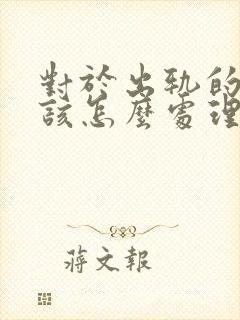 對於出軌的
該怎麼處理
蔣文報